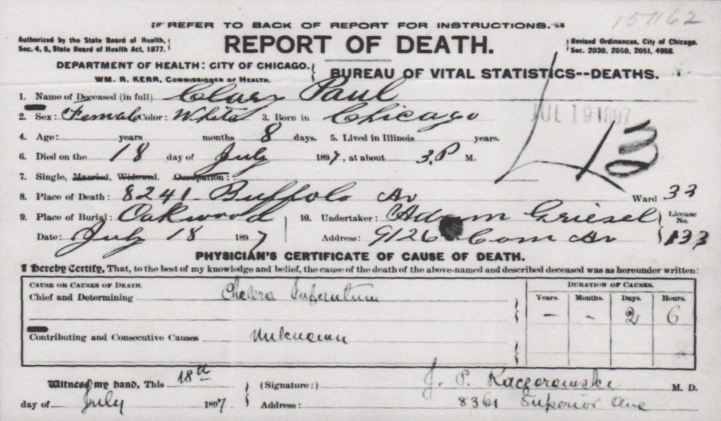 REFER TO BACK OF REPORT FOR INSTRUCTIONS.
15762
Authorized by the State Board of Health,
Sec. 4, 5, State Board of Health Act, 1877.
REPORT OF DEATH.
Revised Ordinances, City of Chicago.
Sec. 2030, 2050, 2051, 4958.
DEPARTMENT OF HEALTH: CITY OF CHICAGO.
WM. R. KERR, COMMISSIONER OF HEALTH.
BUREAU OF VITAL STATISTICS--DEATHS.
1. Name of Deceased (in full) Clary Paul
JUL 19 1897
2. Sex: Female Color: White 3. Born in Chicago
4. Age: years months 8 days. 5. Lived in Illinois years.
6. Died on the 18 day of July 1897, at about 3 P M.
7. Single, Married, Widowed. Occupation:
8. Place of Death: 8241 Buffalo Av Ward 33
9. Place of Burial: Oakwood 10. Undertaker: Adam Griesel License No.
Date: July 18 1897 Address: 9126 Com Av 133
PHYSICIAN'S CERTIFICATE OF CAUSE OF DEATH.
I Hereby Certify, That, to the best of my knowledge and belief, the cause of the death of the above-named and described deceased was as hereunder written:
CAUSE OR CAUSES OF DEATH. DURATION OF CAUSES.
Chief and Determining Cholera Infantum
Years. Months. Days. Hours.
- - 2 6
Contributing and Consecutive Causes unknown
Witness my hand, This 18th (Signature:) J. P. Kaczorowski M. D.
day of July 1897 Address: 8361 Superior Ave